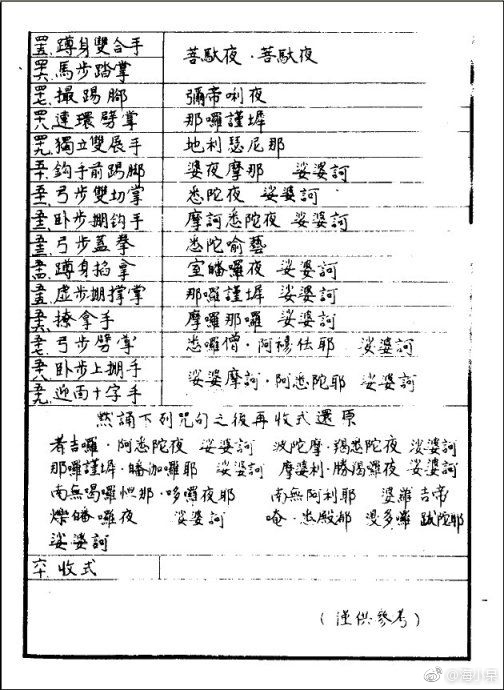 四五.蹲身雙合手 菩馱夜·菩馱夜
四六.馬步踏掌
四七.撮踢腳 彌帝唎夜
四八.連環劈掌 那囉謹墀
四九.獨立雙展手 地利瑟尼那
五十.鈎手前踢脚 婆夜摩那 娑婆訶
五一.弓步雙切掌 悉陀夜 娑婆訶
五二.卧步掤鈎手 摩訶悉陀夜 娑婆訶
五三.弓步蓋拳 悉陀喻藝
五四.蹲身掐拿 室皤囉夜 娑婆訶
五五.虛步掤撐掌 那囉謹墀 娑婆訶
五六.撩拿手 摩囉那囉 娑婆訶
五七.弓步劈掌 悉囉僧·阿穆佉耶 娑婆訶
五八.卧步上掤手 娑婆摩訶·阿悉陀耶 娑婆訶
五九.迎面十字手
然誦下列咒句之後再收式還原
者吉囉·阿悉陀夜 娑婆訶 波陀摩·羯悉陀夜 娑婆訶
那囉謹墀·皤伽囉耶 娑婆訶 摩婆利·勝羯囉夜 娑婆訶
南無喝囉怛那·哆囉夜耶 南無阿利耶 婆羅吉帝
爍皤囉夜 娑婆訶 唵·悉殿都 漫多囉 跋陀耶
娑婆訶
六十.收式
(僅供參考)